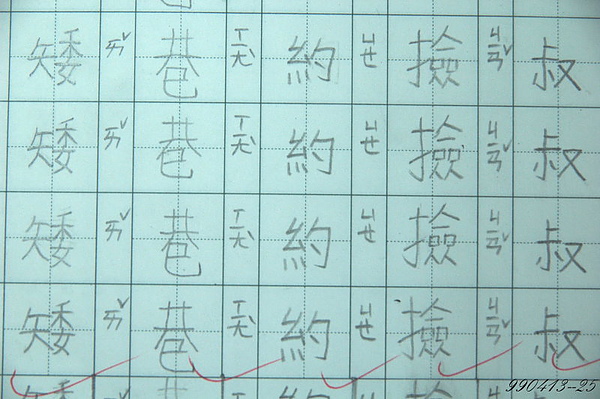 矮ㄞˇ 巷ㄒㄧㄤˋ 約ㄩㄝ 撿ㄐㄧㄢˇ 叔
矮ㄞˇ 巷ㄒㄧㄤˋ 約ㄩㄝ 撿ㄐㄧㄢˇ 叔
矮ㄞˇ 巷ㄒㄧㄤˋ 約ㄩㄝ 撿ㄐㄧㄢˇ 叔
矮ㄞˇ 巷ㄒㄧㄤˋ 約ㄩㄝ 撿ㄐㄧㄢˇ 叔
990413-25